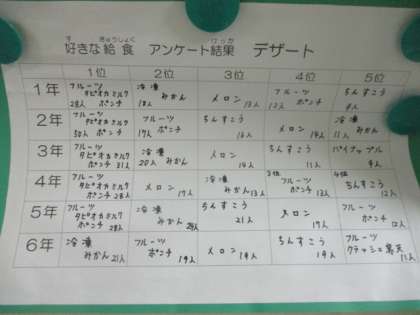 好きな給食 アンケート結果 デザート
す きゅうしょく けっか
1位 2位 3位 4位 5位
1年 フルーツタピオカミルクポンチ 28人 冷凍みかん 18人 メロン 13人 フルーツポンチ 12人 ちんすこう 9人
2年 フルーツタピオカミルクポンチ フルーツポンチ 17人 ちんすこう 16人 メロン 14人 冷凍みかん 11人
3年 フルーツタピオカミルクポンチ 31人 冷凍みかん 20人 メロン 14人 ちんすこう 11人 パイナップル 9人
4年 フルーツタピオカミルクポンチ 28人 メロン 17人 冷凍みかん 13人 3位 フルーツポンチ 13人 4位 ちんすこう 12人
5年 フルーツタピオカミルクポンチ 28人 冷凍みかん ちんすこう 21人 メロン 17人 フルーツポンチ 12人
6年 冷凍みかん 21人 フルーツポンチ 19人 メロン 19人 ちんすこう 19人 フルーツクラッシュ寒天 11人